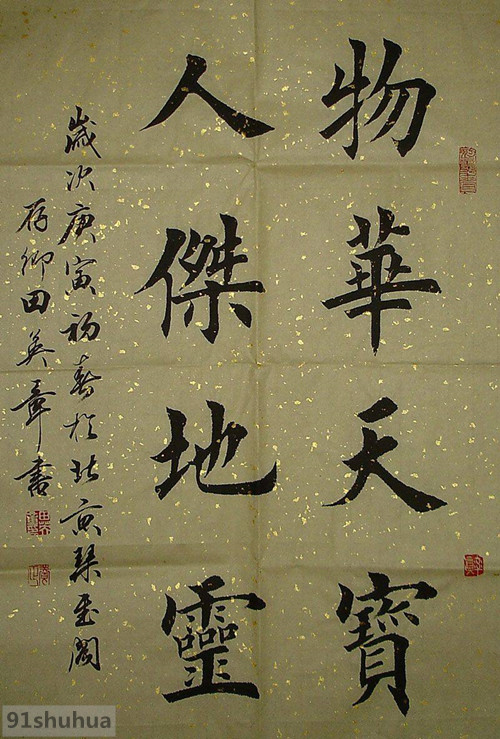 物華天寶
人傑地靈
歲次庚寅初春於北京琴墨閣
存卿田英章書
91shuhua